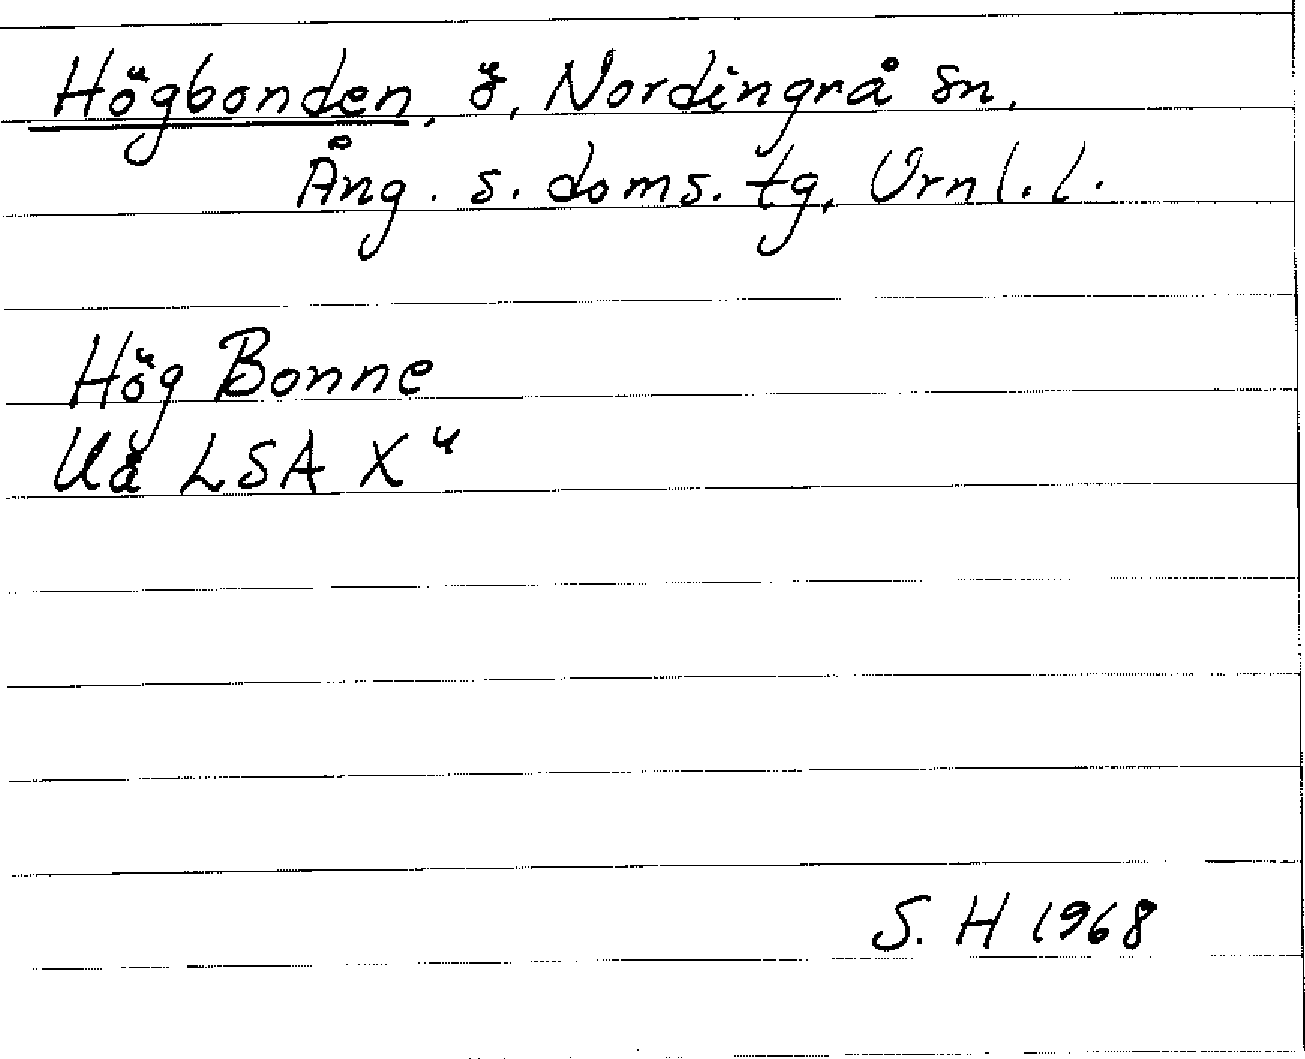 Högbonden, ö, Nordingrå sn,
Ång. s. doms. tg, Vrnl. l.
Hög Bonne
Uå LSA X⁴
S. H 1968